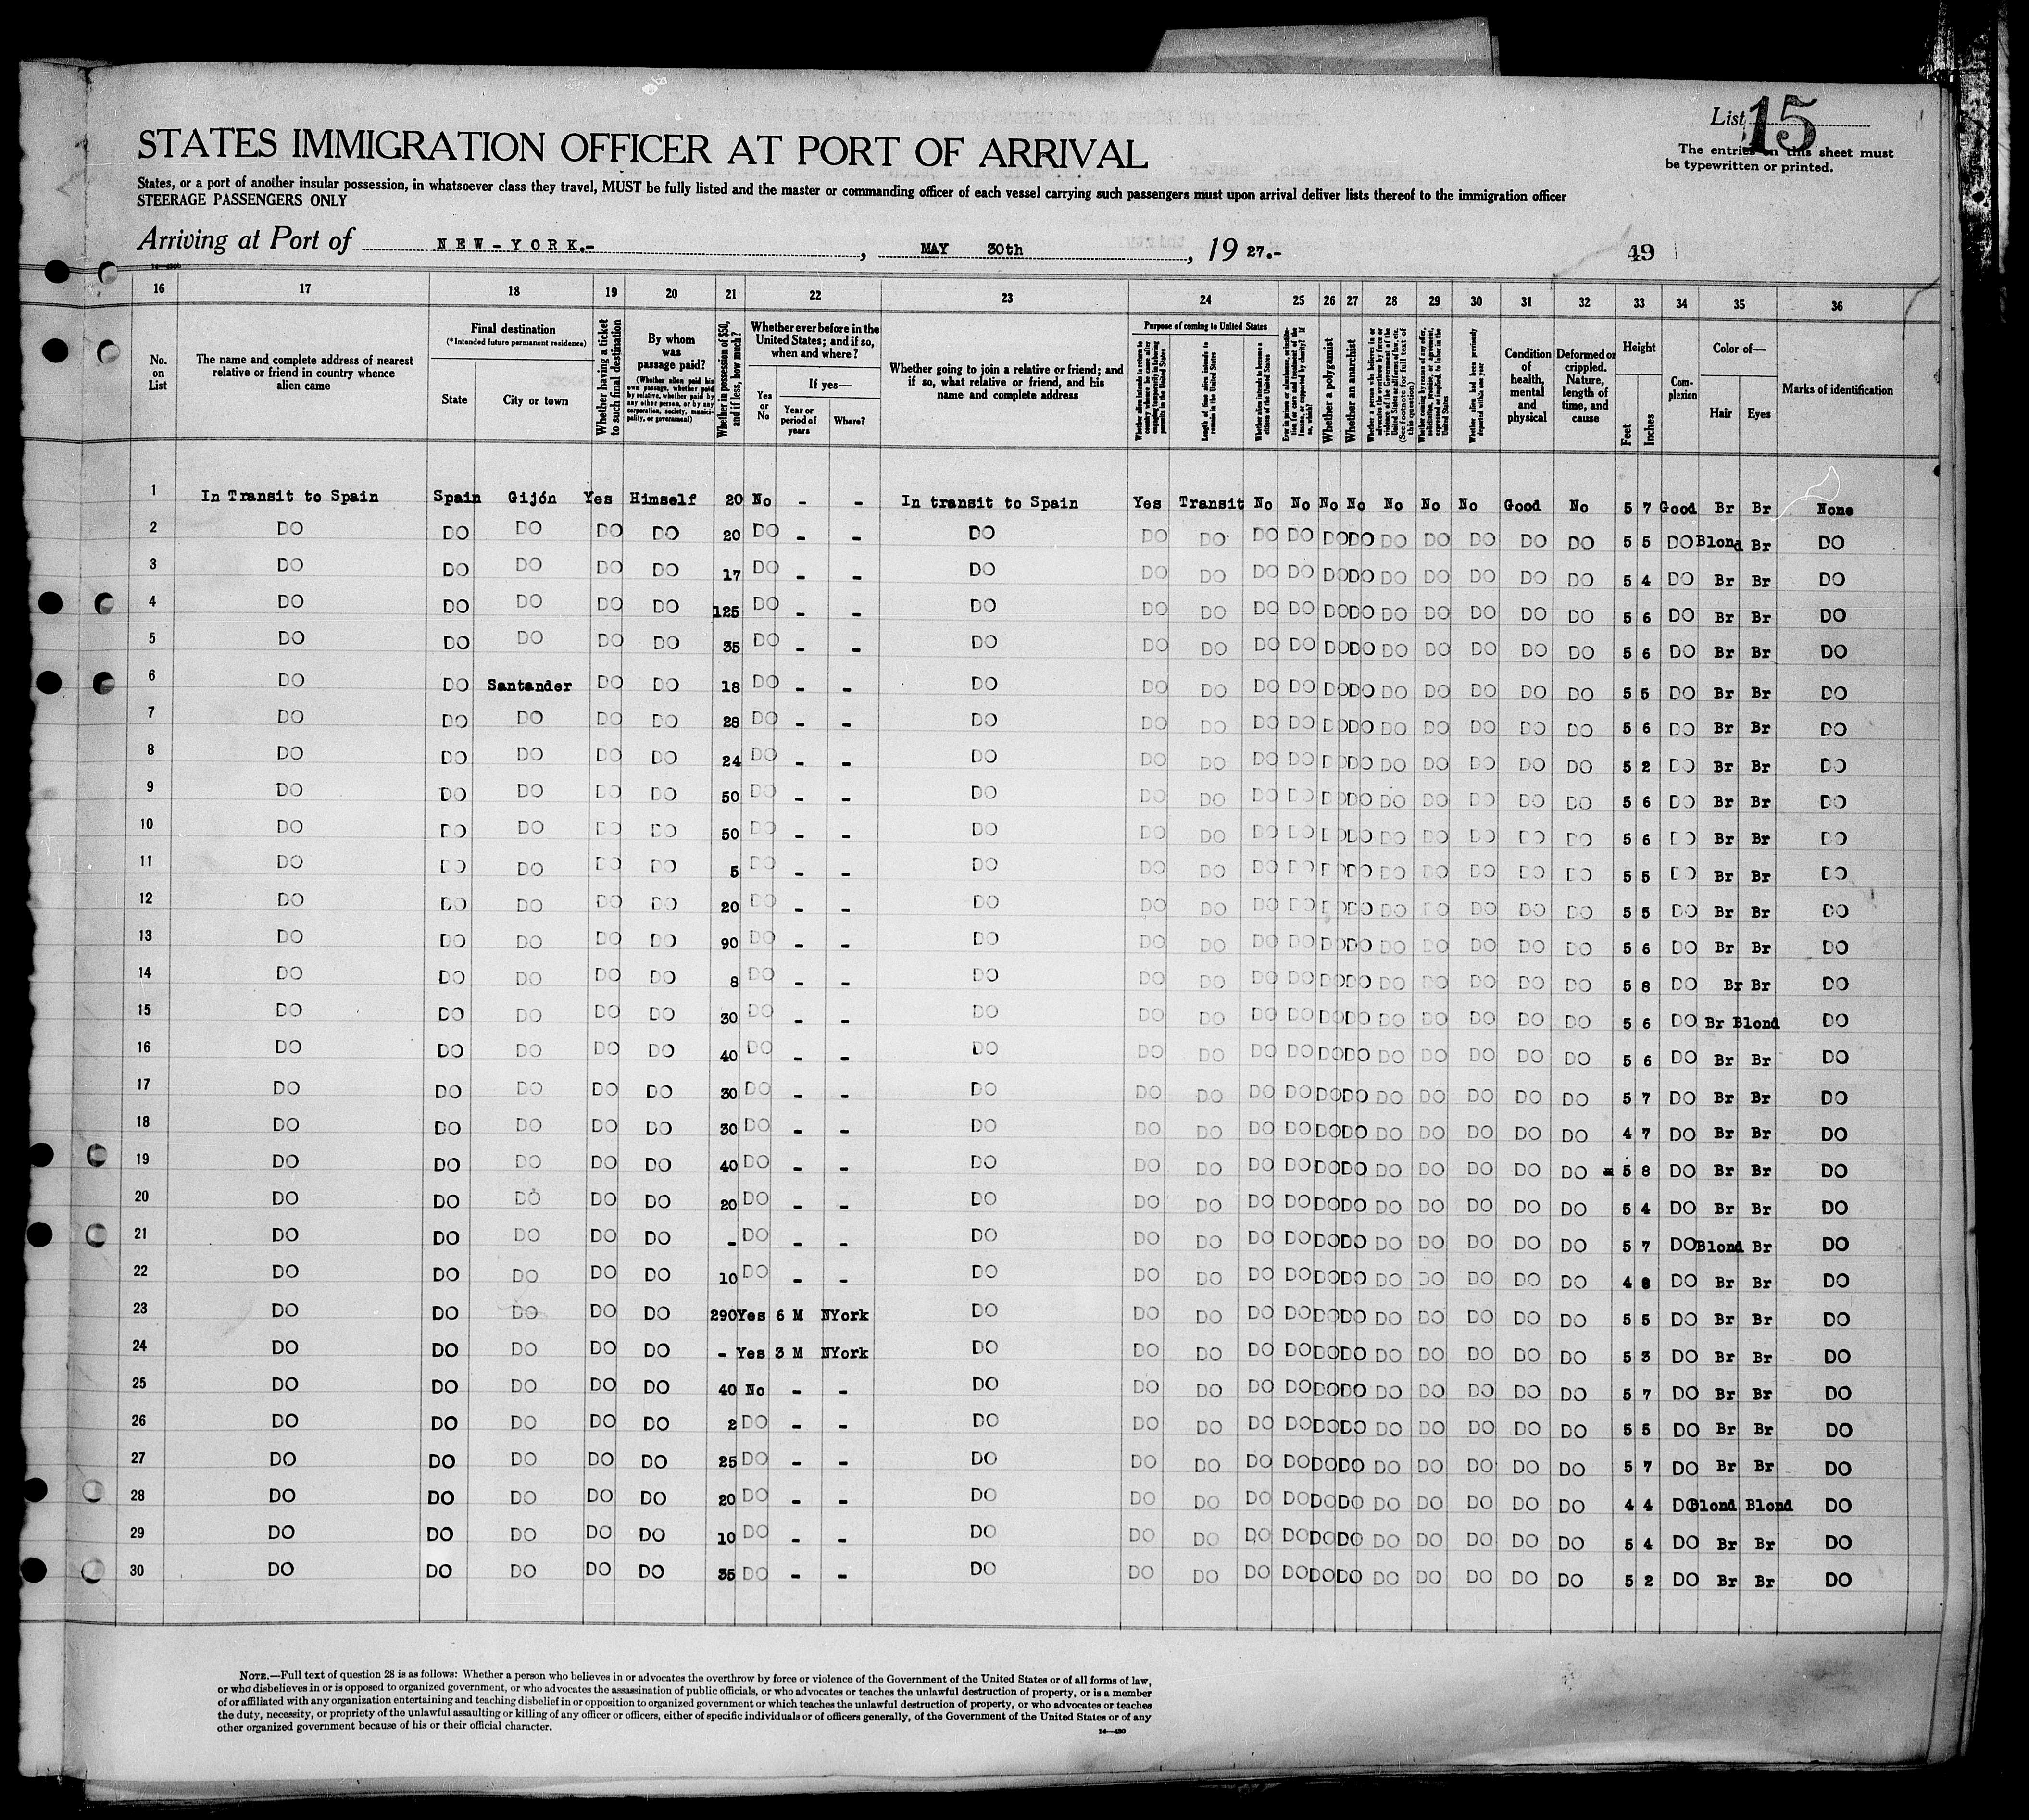 List 15
The entries on this sheet must
be typewritten or printed.
STATES IMMIGRATION OFFICER AT PORT OF ARRIVAL
States, or a port of another insular possession, in whatsoever class they travel, MUST be fully listed and the master or commanding officer of each vessel carrying such passengers must upon arrival deliver lists thereof to the immigration officer
STEERAGE PASSENGERS ONLY
Arriving at Port of NEW-YORK.- , MAY 30th , 19 27.-
49
16 17 18 19 20 21 22 23 24 25 26 27 28 29 30 31 32 33 34 35 36
No. on List
The name and complete address of nearest relative or friend in country whence alien came
Final destination
(*Intended future permanent residence)
State
City or town
Whether having a ticket to such final destination
By whom was passage paid?
(Whether alien paid his own passage, whether paid by relative, whether paid by any other person, or by any corporation, society, municipality, or government)
Whether in possession of $50, and if less, how much?
Whether ever before in the United States; and if so, when and where?
Yes or No
If yes—
Year or period of years
Where?
Whether going to join a relative or friend; and if so, what relative or friend, and his name and complete address
Purpose of coming to United States
Length of time alien intends to remain in the United States
Whether alien intends to become a citizen of the United States
Whether a polygamist
Whether an anarchist
Condition of health, mental and physical
Deformed or crippled. Nature, length of time, and cause
Height
Feet
Inches
Complexion
Color of—
Hair
Eyes
Marks of identification
1 In Transit to Spain Spain Gijón Yes Himself 20 No - - In transit to Spain Yes Transit No No No No No No No Good No 5 7 Good Br Br None
2 DO DO DO DO DO 20 DO - - DO DO DO DO DO DO DO DO DO DO DO DO 5 5 DO Blond Br DO
3 DO DO DO DO DO 17 DO - - DO DO DO DO DO DO DO DO DO DO DO DO 5 4 DO Br Br DO
4 DO DO DO DO DO 125 DO - - DO DO DO DO DO DO DO DO DO DO DO DO 5 6 DO Br Br DO
5 DO DO DO DO DO 35 DO - - DO DO DO DO DO DO DO DO DO DO DO DO 5 6 DO Br Br DO
6 DO DO Santander DO DO 18 DO - - DO DO DO DO DO DO DO DO DO DO DO DO 5 5 DO Br Br DO
7 DO DO DO DO DO 28 DO - - DO DO DO DO DO DO DO DO DO DO DO DO 5 6 DO Br Br DO
8 DO DO DO DO DO 24 DO - - DO DO DO DO DO DO DO DO DO DO DO DO 5 2 DO Br Br DO
9 DO DO DO DO DO 50 DO - - DO DO DO DO DO DO DO DO DO DO DO DO 5 6 DO Br Br DO
10 DO DO DO DO DO 50 DO - - DO DO DO DO DO DO DO DO DO DO DO DO 5 6 DO Br Br DO
11 DO DO DO DO DO 5 DO - - DO DO DO DO DO DO DO DO DO DO DO DO 5 5 DO Br Br DO
12 DO DO DO DO DO 20 DO - - DO DO DO DO DO DO DO DO DO DO DO DO 5 5 DO Br Br DO
13 DO DO DO DO DO 90 DO - - DO DO DO DO DO DO DO DO DO DO DO DO 5 6 DO Br Br DO
14 DO DO DO DO DO 8 DO - - DO DO DO DO DO DO DO DO DO DO DO DO 5 8 DO Br Br DO
15 DO DO DO DO DO 30 DO - - DO DO DO DO DO DO DO DO DO DO DO DO 5 6 DO Br Blond DO
16 DO DO DO DO DO 40 DO - - DO DO DO DO DO DO DO DO DO DO DO DO 5 6 DO Br Br DO
17 DO DO DO DO DO 30 DO - - DO DO DO DO DO DO DO DO DO DO DO DO 5 7 DO Br Br DO
18 DO DO DO DO DO 30 DO - - DO DO DO DO DO DO DO DO DO DO DO DO 4 7 DO Br Br DO
19 DO DO DO DO DO 40 DO - - DO DO DO DO DO DO DO DO DO DO DO DO 5 8 DO Br Br DO
20 DO DO DO DO DO 20 DO - - DO DO DO DO DO DO DO DO DO DO DO DO 5 4 DO Br Br DO
21 DO DO DO DO DO - DO - - DO DO DO DO DO DO DO DO DO DO DO DO 5 7 DO Blond Br DO
22 DO DO DO DO DO 10 DO - - DO DO DO DO DO DO DO DO DO DO DO DO 4 8 DO Br Br DO
23 DO DO DO DO DO 290 Yes 6 M NYork DO DO DO DO DO DO DO DO DO DO DO DO 5 5 DO Br Br DO
24 DO DO DO DO DO - Yes 3 M NYork DO DO DO DO DO DO DO DO DO DO DO DO 5 3 DO Br Br DO
25 DO DO DO DO DO 40 No - - DO DO DO DO DO DO DO DO DO DO DO DO 5 7 DO Br Br DO
26 DO DO DO DO DO 2 DO - - DO DO DO DO DO DO DO DO DO DO DO DO 5 5 DO Br Br DO
27 DO DO DO DO DO 25 DO - - DO DO DO DO DO DO DO DO DO DO DO DO 5 7 DO Br Br DO
28 DO DO DO DO DO 20 DO - - DO DO DO DO DO DO DO DO DO DO DO DO 4 4 DO Blond Blond DO
29 DO DO DO DO DO 10 DO - - DO DO DO DO DO DO DO DO DO DO DO DO 5 4 DO Br Br DO
30 DO DO DO DO DO 35 DO - - DO DO DO DO DO DO DO DO DO DO DO DO 5 2 DO Br Br DO
NOTE.—Full text of question 28 is as follows: Whether a person who believes in or advocates the overthrow by force or violence of the Government of the United States or of all forms of law,
or who disbelieves in or is opposed to organized government, or who advocates the assassination of public officials, or who advocates or teaches the unlawful destruction of property, or is a member
of or affiliated with any organization entertaining and teaching disbelief in or opposition to organized government or which teaches the unlawful destruction of property, or who advocates or teaches
the duty, necessity, or propriety of the unlawful assaulting or killing of any officer or officers, either of specific individuals or of officers generally, of the Government of the United States or of any
other organized government because of his or their official character.
14—430